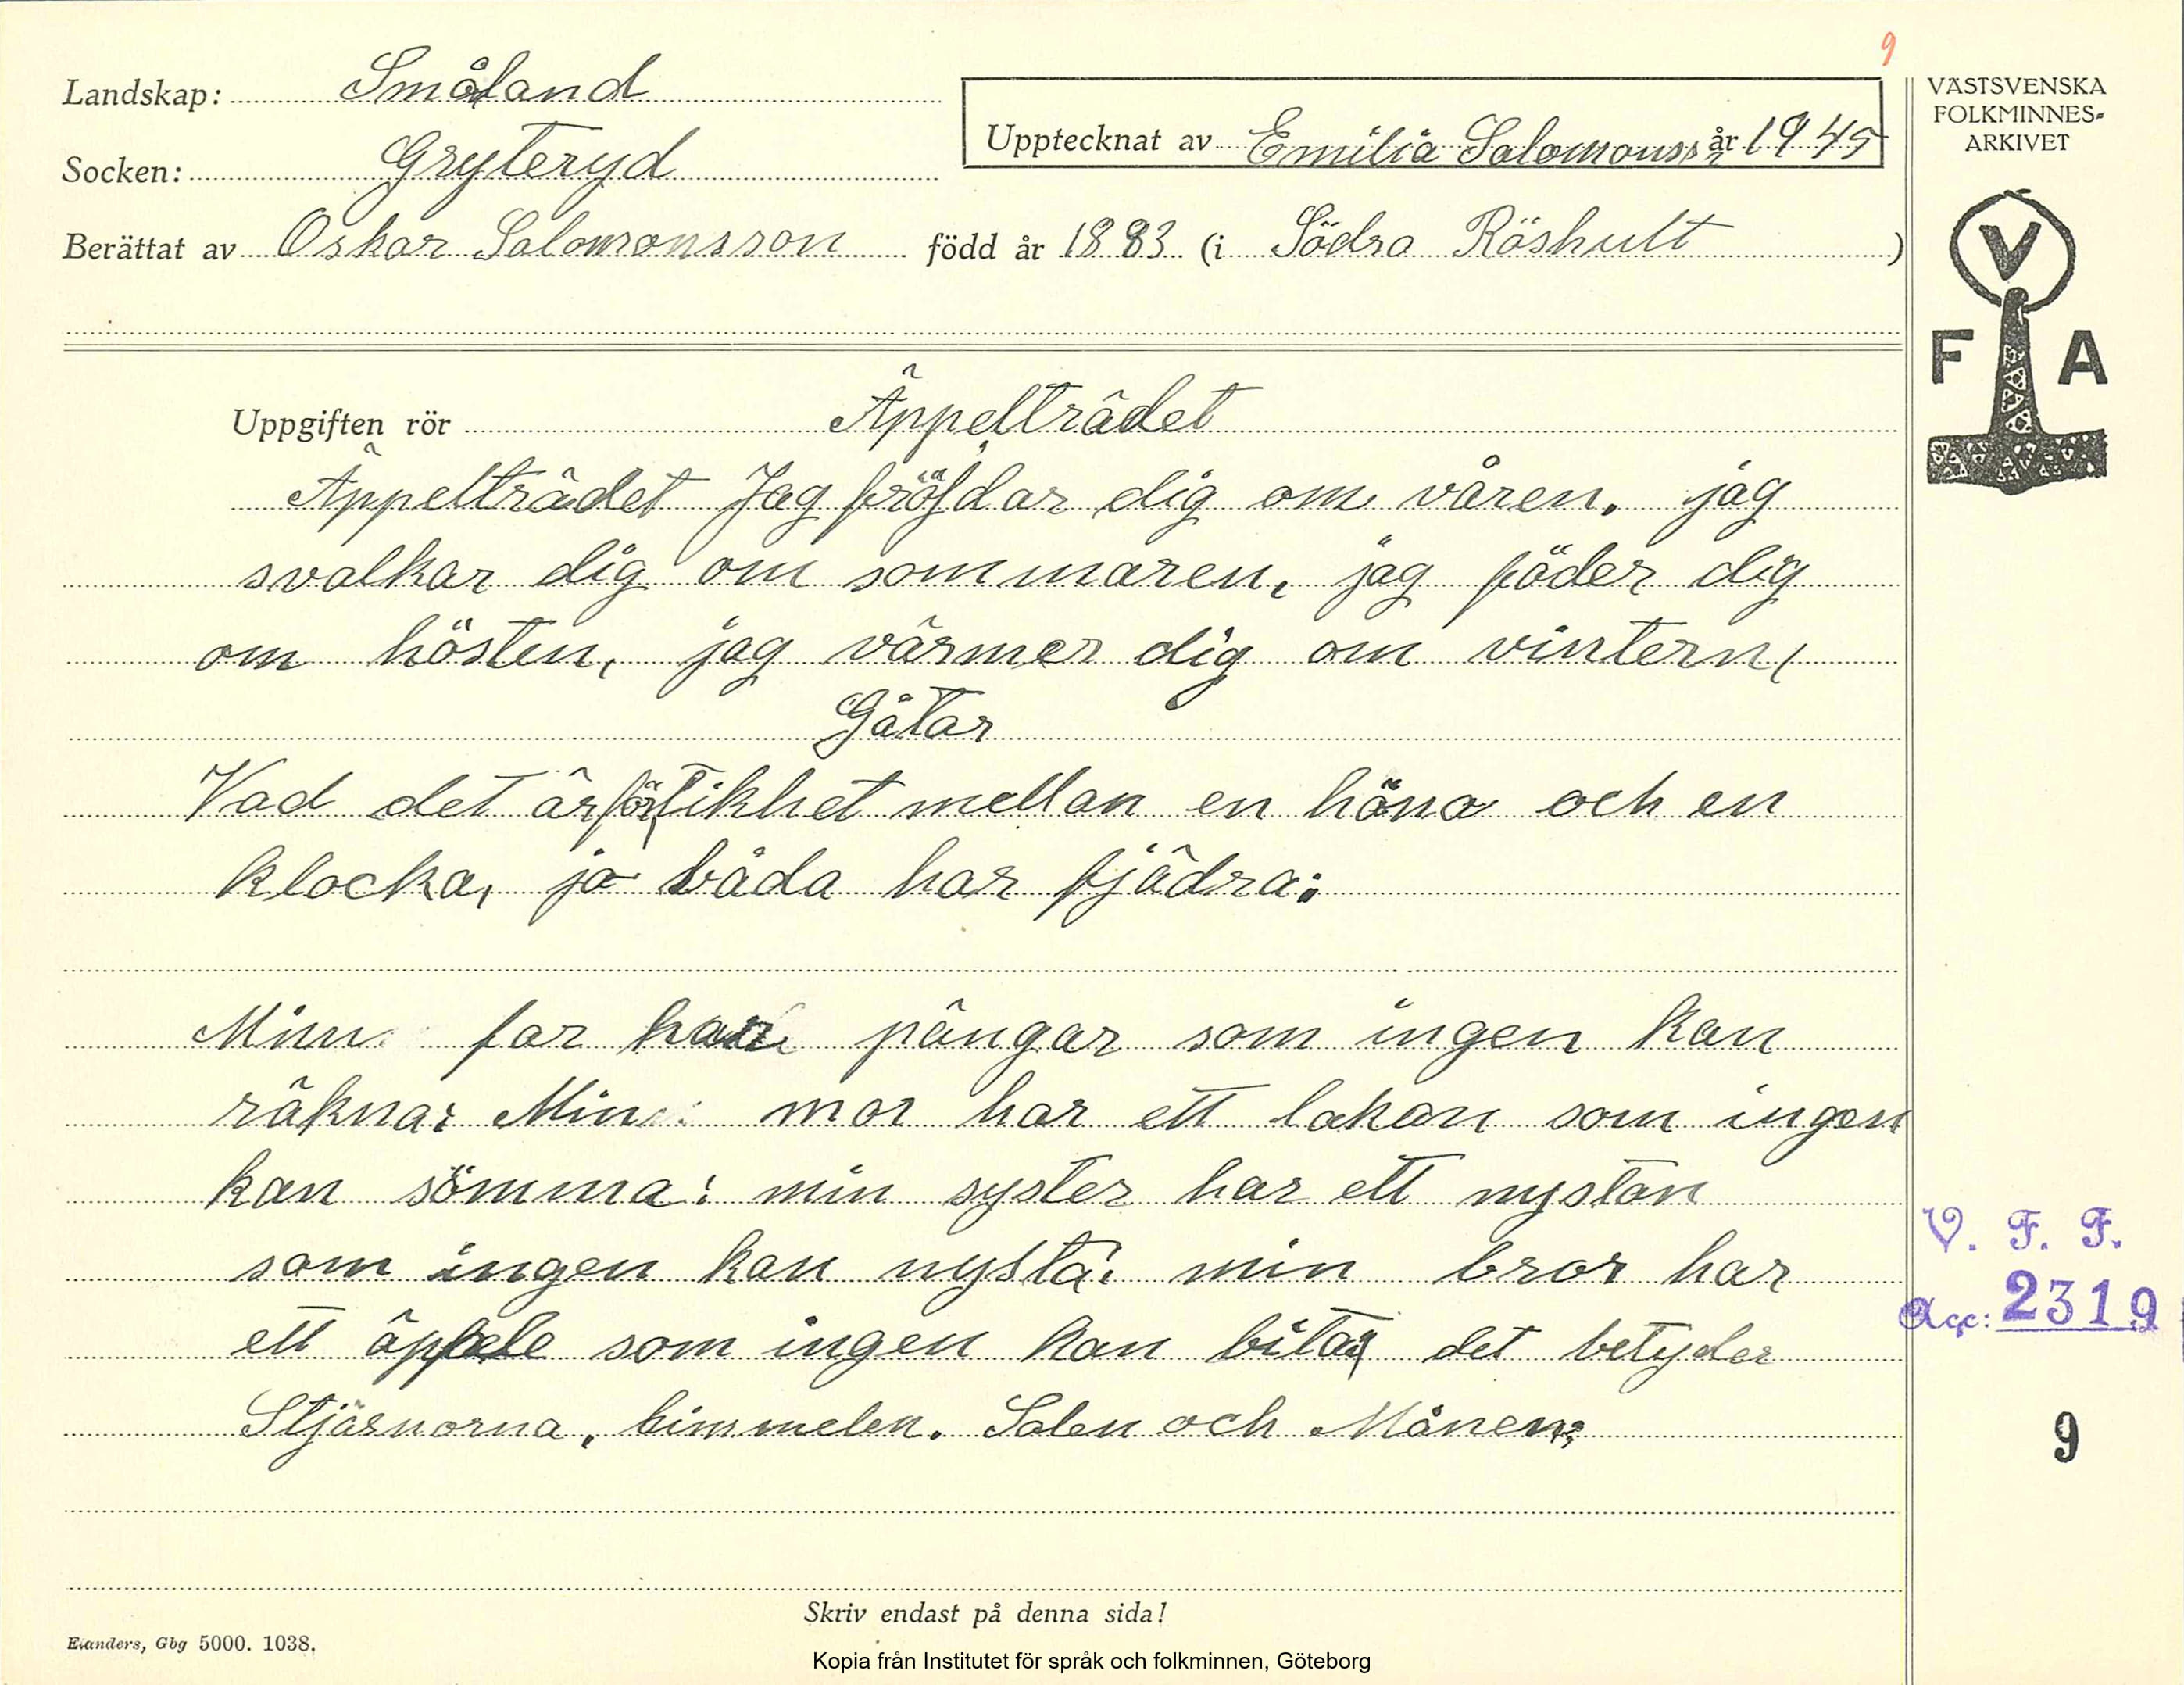 9
Landskap: Småland
Socken: Gryteryd
Upptecknat av Emilia Salomonss år 1945
Berättat av Oskar Salomonsson född år 1883 (i Södra Röshult)
VÄSTSVENSKA
FOLKMINNES-
ARKIVET
V
F A
Uppgiften rör Äppelträdet
Äppelträdet Jag fröjdar dig om våren. jag
svalkar dig om sommaren, jag föder dig
om hösten, jag värmer dig om vintern,
Gåtar
Vad det är för likhet mellan en höna och en
klocka, ja båda har fjädra.
Min far har pängar som ingen kan
räkna: Min mor har ett lakan som ingen
kan sömma: min syster har ett nystan
som ingen kan nysta: min bror har
ett äpple som ingen kan bita, det betyder
Stjärnorna, himmelen. Solen och Månen;
V. F. F.
Acc: 2319
9
Skriv endast på denna sida!
Elanders, Gbg 5000. 1038.
Kopia från Institutet för språk och folkminnen, Göteborg